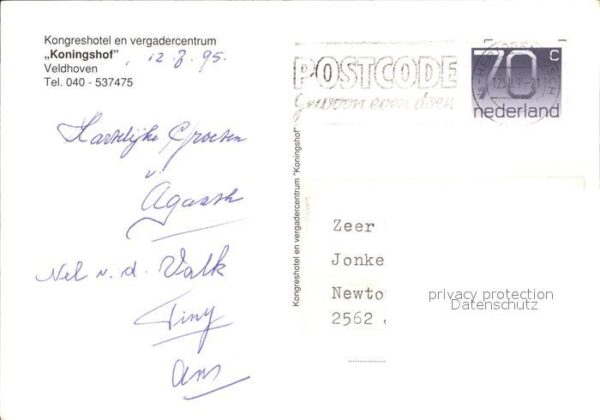 Kongreshotel en vergadercentrum
„Koningshof"
Veldhoven
Tel. 040 - 537475
12.8.'95.
POSTCODE
Gewoon even doen
70 c
nederland
Hartelijke Groeten
v
Agaath
Nel v. d. Valk
Tiny
Ans
Kongreshotel en vergadercentrum "Koningshof"
Zeer
Jonke
Newto
2562
privacy protection
Datenschutz